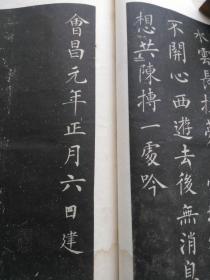 水雲長
不開心西遊去後無消息
想共陳摶一處吟
會昌元年正月六日建